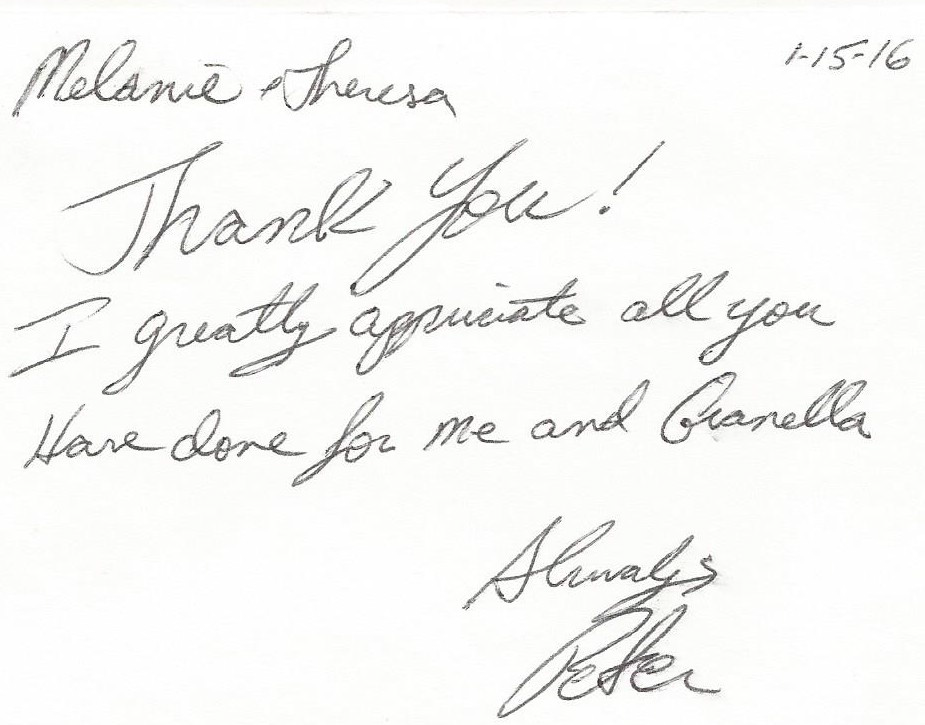 1-15-16
Melanie & Theresa
Thank You!
I greatly appriciate all you
Have done for me and Granella
Always
Peter